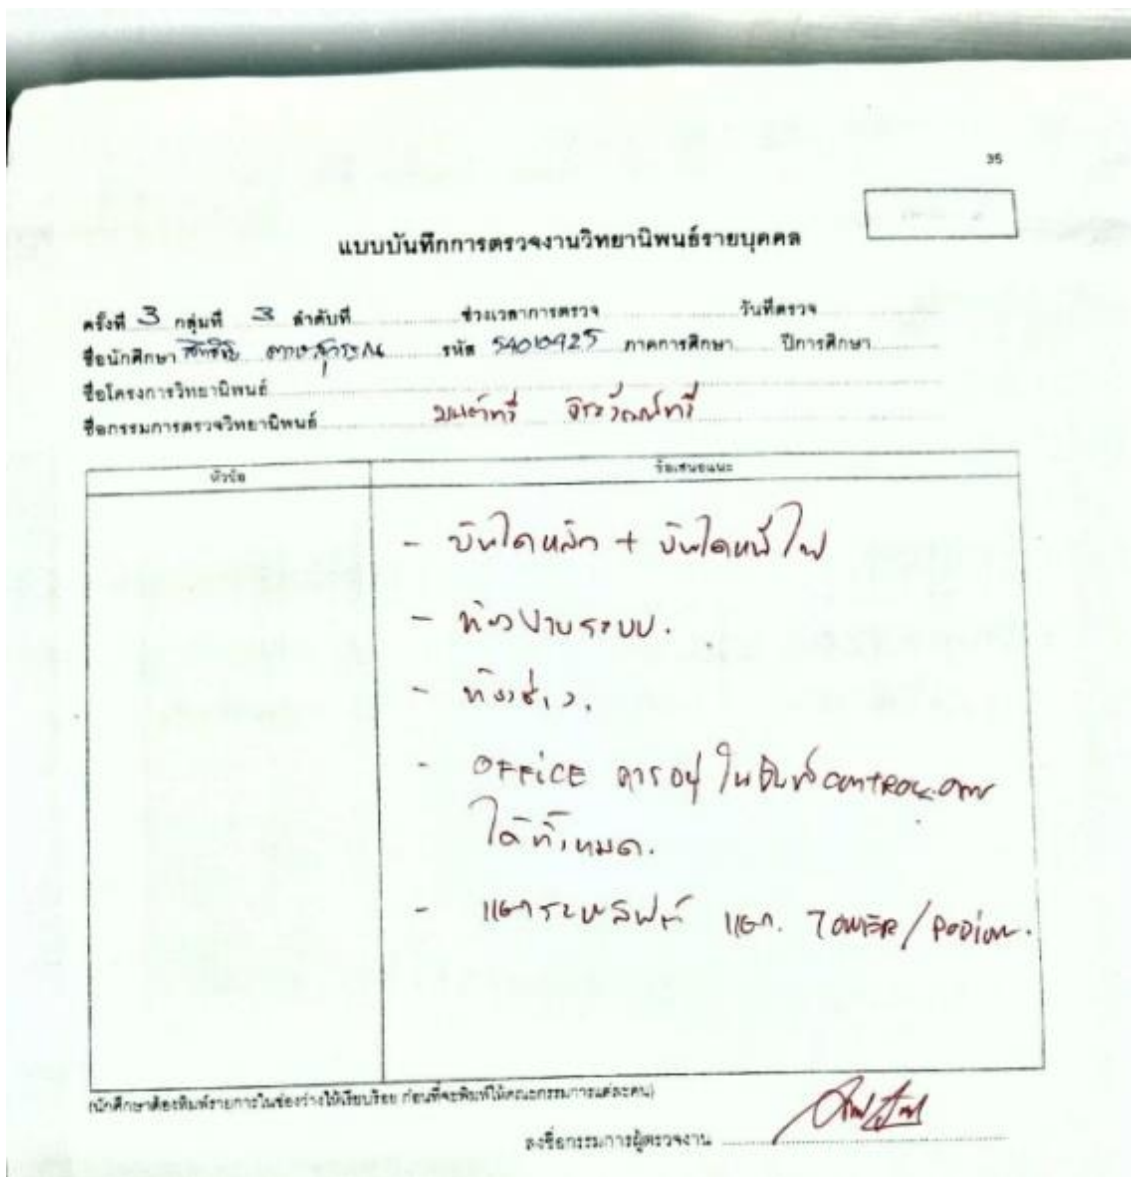 35
แบบบันทึกการตรวจงานวิทยานิพนธ์รายบุคคล
ครั้งที่ 3 กลุ่มที่ 3 ลำดับที่ ช่วงเวลาการตรวจ วันที่ตรวจ
ชื่อนักศึกษา รหัส 54010925 ภาคการศึกษา ปีการศึกษา
ชื่อโครงการวิทยานิพนธ์
ชื่อกรรมการตรวจวิทยานิพนธ์
หัวข้อ ข้อเสนอแนะ
- บันไดหลัก + บันไดหนีไฟ
- ห้องงานระบบ.
- ห้องช่าง.
- OFFICE ควรอยู่ใน CONTROL
ได้ทั้งหมด.
- แยกระบบลิฟต์ แยก. TOWER/PODIUM.
(นักศึกษาต้องพิมพ์รายการในช่องว่างให้เรียบร้อย ก่อนที่จะพิมพ์ให้คณะกรรมการแต่ละคน)
ลงชื่อกรรมการผู้ตรวจงาน